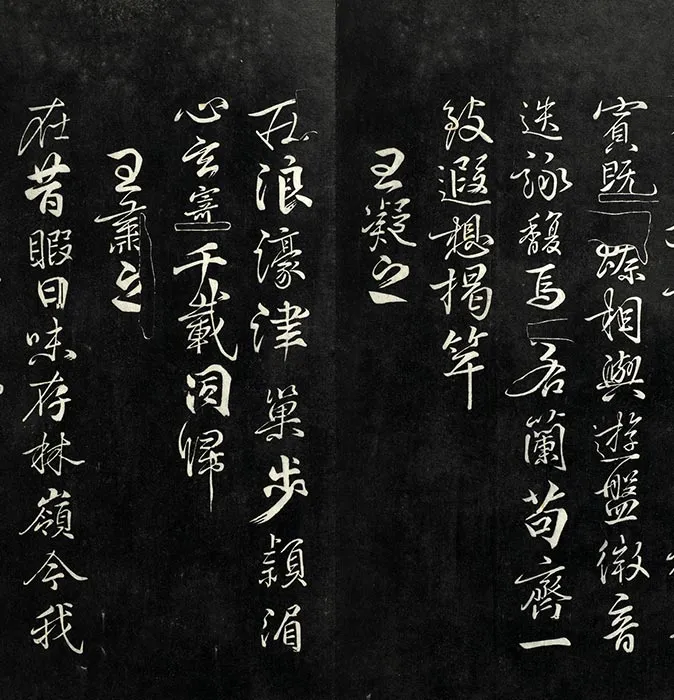 賓既臻相與遊盤微音
迭詠馥焉若蘭苟齊一
致遐想揭竿
王凝之
莊浪濠津巢步潁湄
心玄寄千載同歸
王肅之
在昔暇日味存林嶺今我